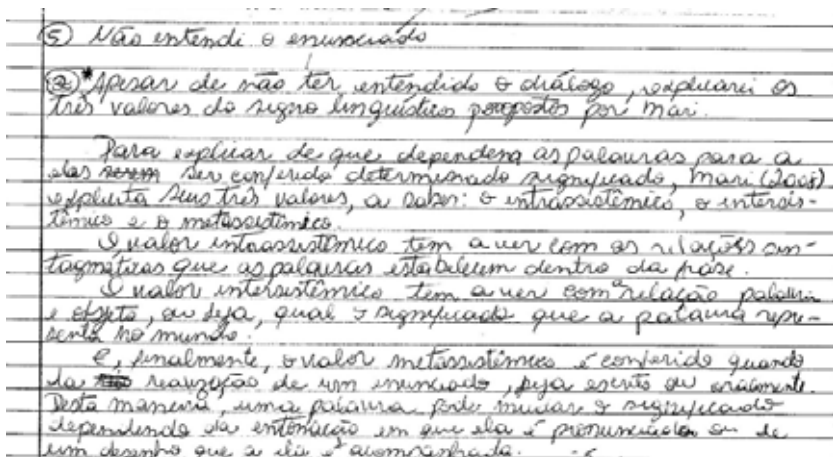 ⑤ Não entendi o enunciado
②* Apesar de não ter entendido o diálogo, explicarei os
três valores do signo linguístico propostos por Mari.
Para explicar de que dependem as palavras para a
elas serem ser conferido determinado significado, Mari (2008)
explicita seus três valores, a saber: o intrassistêmico, o intersis-
têmico e o metassistêmico.
O valor intrassistêmico tem a ver com as relações sin-
tagmáticas que as palavras estabelecem dentro da frase.
O valor intersistêmico tem a ver com a relação palavra
e objeto, ou seja, qual o significado que a palavra repre-
senta no mundo.
E, finalmente, o valor metassistêmico é conferido quando
da realização de um enunciado, seja escrito ou oralmente.
Desta maneira, uma palavra pode mudar o significado
dependendo da entonação em que ela é pronunciada ou de
um desenho que a ela é acompanhada.